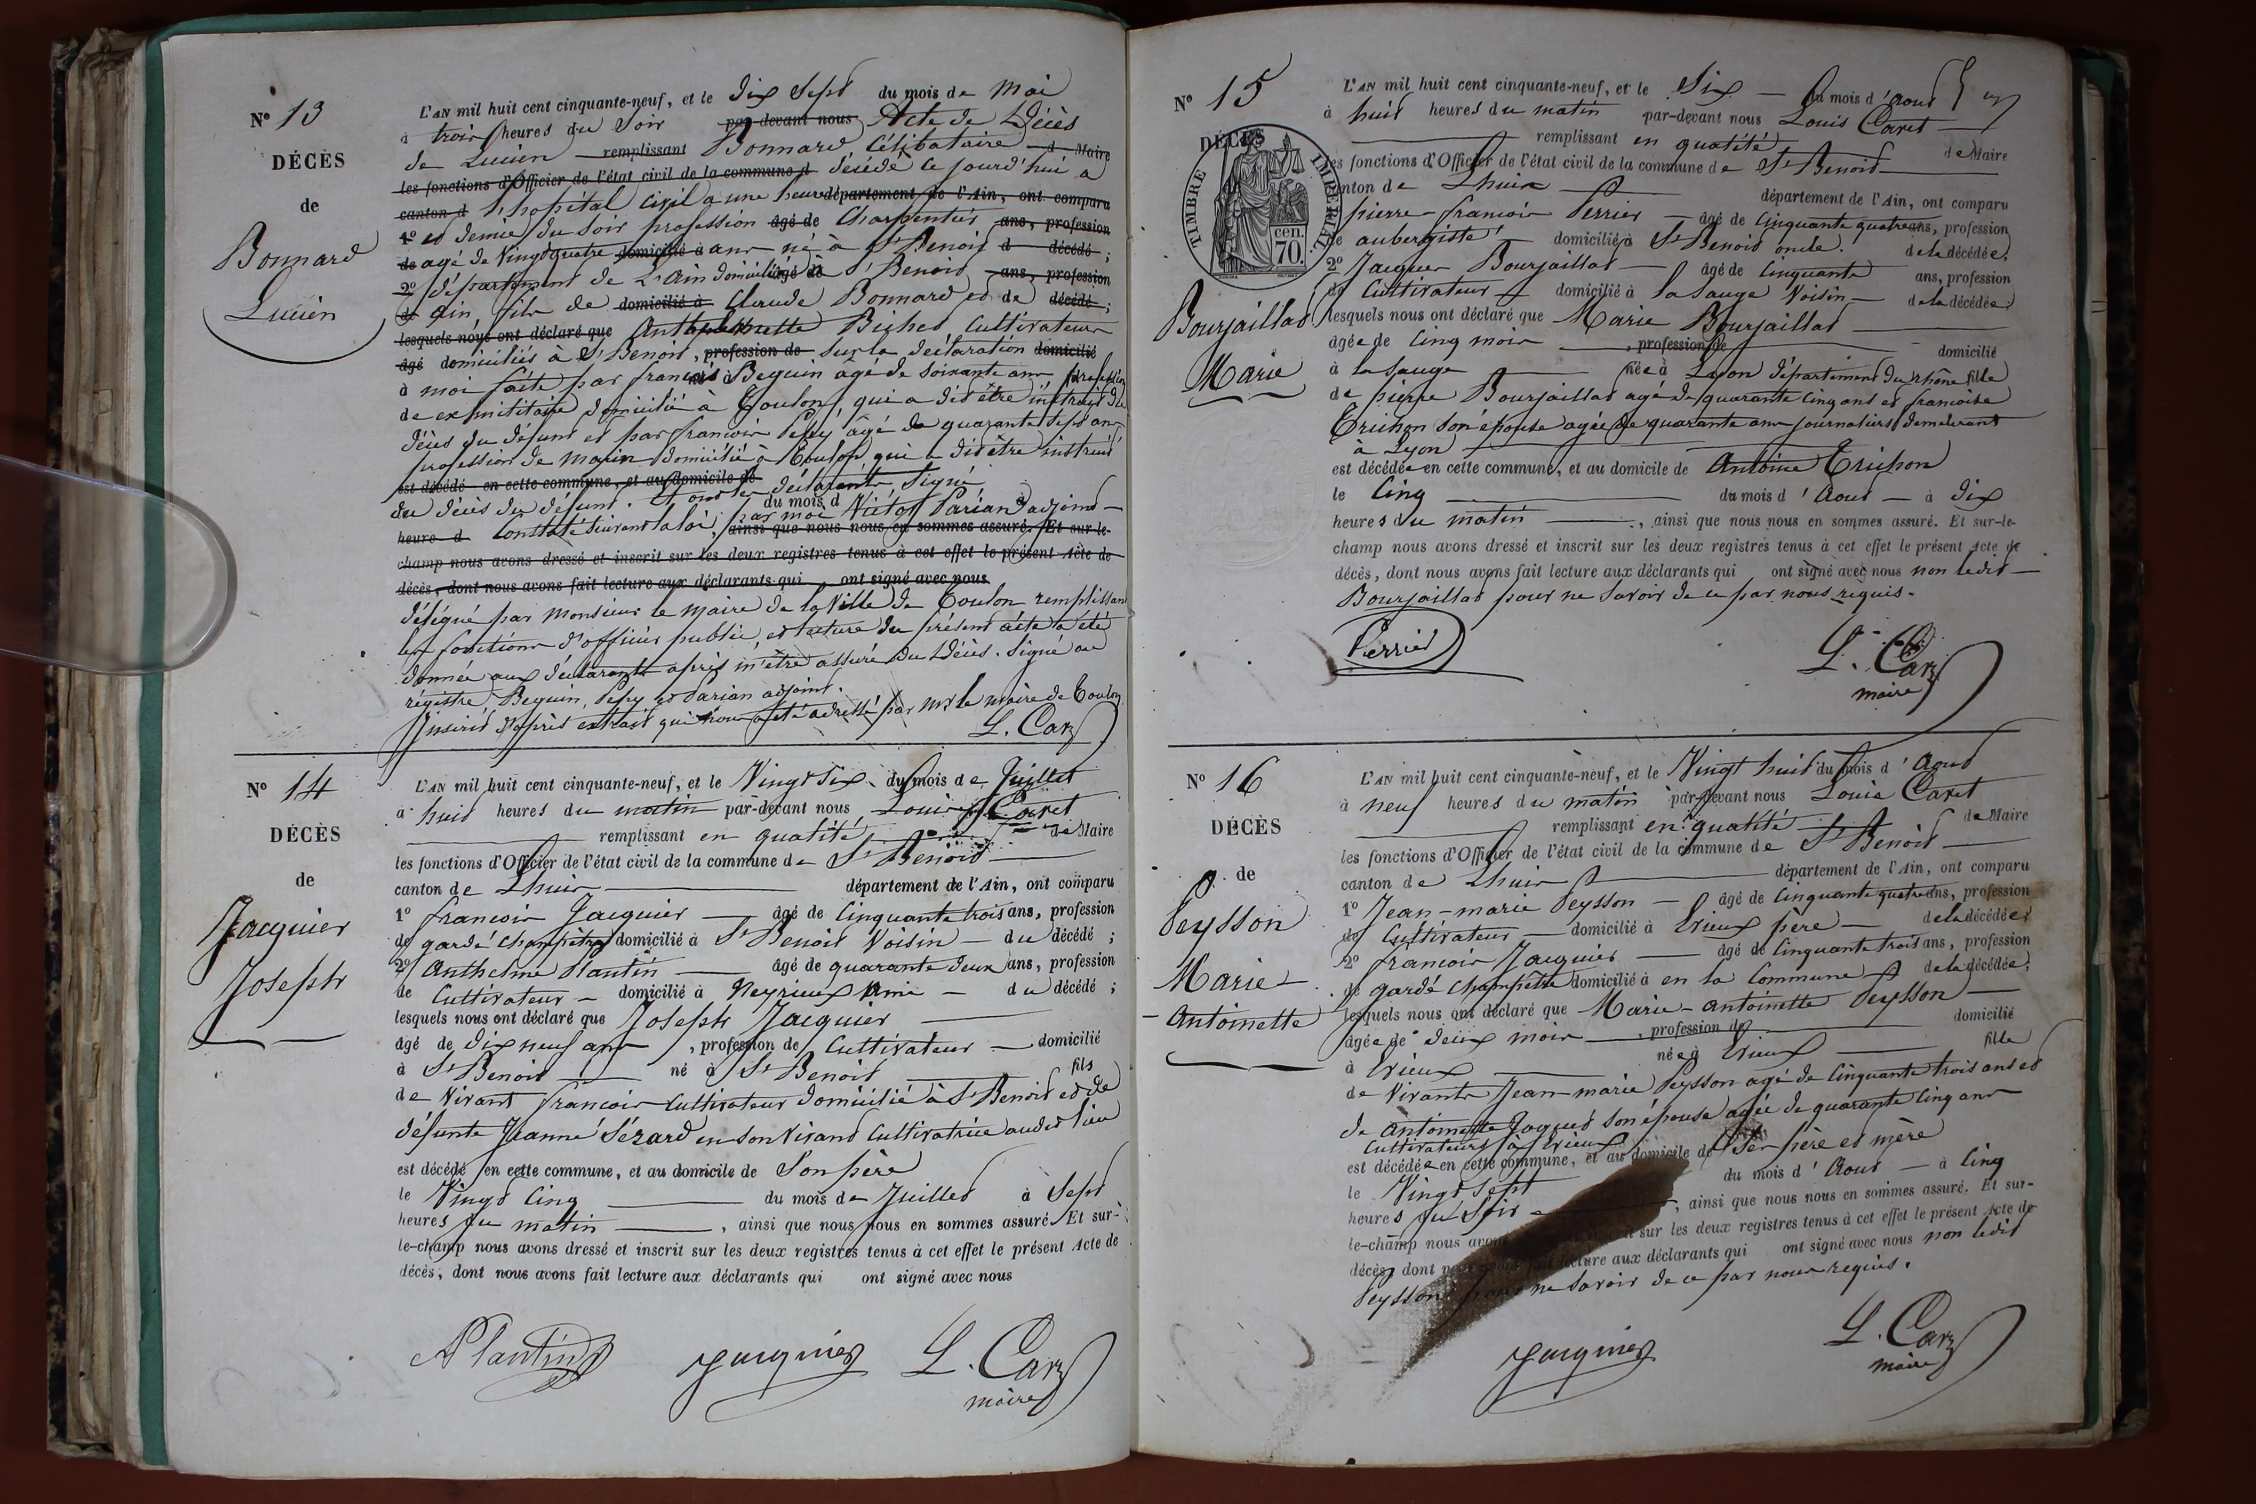 N° 13
DÉCÈS
de
Bonnard
Lucien
L'AN mil huit cent cinquante-neuf, et le dix Sept du mois de Mai
à trois heures du Soir par-devant nous Acte de Décès
de Lucien remplissant Bonnard Célibataire d Maire
les fonctions d'Officier de l'état civil de la commune d décédé ce jourd'hui à
canton d l'hopital Civil a une heure département de l'Ain, ont comparu
1° et demie du Soir profession âgé de Charpentier ans, profession
de agé de Vingt quatre domicilié à ans né à St Benoit d décédé ;
2° département de L'ain domicilié âgé de à St Benoit ans, profession
de ain, fils de domicilié à Claude Bonnard et de décédé ;
lesquels nous ont déclaré que Biched Cultivateurs
âgé domiciliés à St Benoit, profession de Sur la déclaration domicilié
à moi faite par françois né à Beguin agé de Soixante ans profession
de ex militaire domicilié à Toulon, qui a dit être instruit du
décès du défunt et par francois Pehy âgé de quarante Sept ans
profession de Marin domicilié à Toulon qui a dit être instruit
est décédé en cette commune, et au domicile de
du décès du défunt. Et ont les déclarants Signé
du mois d
heure d Constaté Suivant la loi, par moi Victor Parian adjoint
ainsi que nous nous en sommes assuré. Et sur-le-
champ nous avons dressé et inscrit sur les deux registres tenus à cet effet le présent Acte de
décès, dont nous avons fait lecture aux déclarants qui ont signé avec nous
délégué par Monsieur le Maire de la Ville de Toulon remplissant
les fonctions d'officier public, et lecture du présent acte a été
donnée aux déclarants après m'être assuré du Décès. Signé au
régistre, Beguin, Pehy et Parian adjoint.
Inscrit d'après extrait qui nous a été adressé par Mr le maire de Toulon
L. Carz
N° 14
DÉCÈS
de
Jacquier
Joseph
L'AN mil huit cent cinquante-neuf, et le Vingt Six du mois de Juillet
à huit heures du matin par-devant nous Louis Carret
remplissant en qualité de Maire
les fonctions d'Officier de l'état civil de la commune de St Benoit
canton de Lhuis département de l'Ain, ont comparu
1° francois Jacquier âgé de Cinquante trois ans, profession
de garde Champêtre domicilié à St Benoit Voisin du décédé ;
2° Anthelme Plantin âgé de quarante deux ans, profession
de Cultivateur domicilié à Neyrieux Ami du décédé ;
lesquels nous ont déclaré que Joseph Jacquier
âgé de dix neuf ans, profession de Cultivateur domicilié
à St Benoit né à St Benoit fils
de Vivant francois Cultivateur domicilié à St Benoit et de
défunte Jeanne Sézard en Son Vivant Cultivatrice audit lieu
est décédé en cette commune, et au domicile de Son père
le Vingt Cinq du mois de Juillet à Sept
heures du matin, ainsi que nous nous en sommes assuré. Et sur-
le-champ nous avons dressé et inscrit sur les deux registres tenus à cet effet le présent Acte de
décès, dont nous avons fait lecture aux déclarants qui ont signé avec nous
A Plantin Jacquier L. Carz
maire
N° 15
DÉCÈS
TIMBRE IMPÉRIAL
cen.
70.
Bourjaillat
Marie
L'AN mil huit cent cinquante-neuf, et le Six du mois d'Aout
à huit heures du matin par-devant nous Louis Carret
remplissant en qualité de Maire
les fonctions d'Officier de l'état civil de la commune de St Benoit
canton de Lhuis département de l'Ain, ont comparu
pierre-francois Perrier âgé de Cinquante quatre ans, profession
de aubergiste domicilié à St Benoit oncle de la décédée ;
2° Jacques Bourjaillat âgé de Cinquante ans, profession
de Cultivateur domicilié à la Sauge Voisin de la décédée ;
lesquels nous ont déclaré que Marie Bourjaillat
âgée de Cinq mois, profession de domicilié
à la Sauge née à Lyon département du rhône fille
de pierre Bourjaillat agé de quarante Cinq ans et francoise
Trichon Son épouse agée de quarante ans journaliers demeurant
à Lyon
est décédée en cette commune, et au domicile de Antoine Trichon
le Cinq du mois d'Aout à dix
heures du matin, ainsi que nous nous en sommes assuré. Et sur-le-
champ nous avons dressé et inscrit sur les deux registres tenus à cet effet le présent Acte de
décès, dont nous avons fait lecture aux déclarants qui ont signé avec nous non ledit
Bourjaillat pour ne Savoir de ce par nous requis.
Perrier
L. Carz
maire
N° 16
DÉCÈS
de
Peysson
Marie-
Antoinette
L'AN mil huit cent cinquante-neuf, et le Vingt huit du mois d'Aout
à neuf heures du matin par-devant nous Louis Carret
remplissant en qualité de Maire
les fonctions d'Officier de l'état civil de la commune de St Benoit
canton de Lhuis département de l'Ain, ont comparu
1° Jean-marie Peysson âgé de Cinquante quatre ans, profession
de Cultivateur domicilié à Erieux père de la décédée ;
2° francois Jacquier âgé de Cinquante trois ans, profession
de garde Champêtre domicilié à en la Commune de la décédée ;
lesquels nous ont déclaré que Marie-Antoinette Peysson
âgée de deux mois, profession de domicilié
à Erieux née à Erieux fille
de Vivants Jean-marie Peysson agé de Cinquante trois ans et
de Antoinette Jaquet Son épouse agée de quarante Cinq ans
Cultivateurs à Erieux
est décédée en cette commune, et au domicile de Ses père et mère
le Vingt Sept du mois d'Aout à Cinq
heures du Soir, ainsi que nous nous en sommes assuré. Et sur-
le-champ nous sur les deux registres tenus à cet effet le présent Acte de
décès, dont lecture aux déclarants qui ont signé avec nous non ledit
Peysson pour ne Savoir de ce par nous requis.
Jacquier
L. Carz
maire